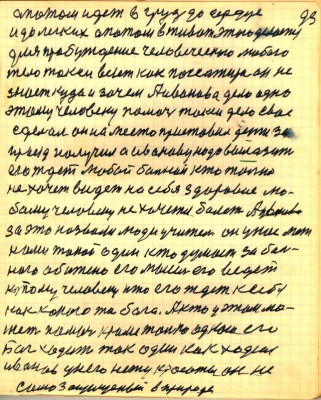 93
а потом идет в груд до сердце
и до легких а потом в живот это делают
для пробуждение человеческо любого
тело такси везет как посажира он не
знает куда и зачем А иванова дело одно
этому человеку помоч такси дело свае
сделал он на место приставил дети за
приезд получил а иванову надо вылазит
его ждет любой балной кто толко
не хочет видет на себя здоровие лю-
бому человеку не хочется болет А иванова
за это назвали люди учителем он у нас меж
нами такой один кто думает за бол-
ного а битено его мысли его ведет
к тому человеку кто его ждет к себе
как какого та бога. А кто у этом мо-
жет помоч кроме толко одного его
Бог ходит так один как ходил
иванов у него нету красоты он не
само защищеный в природе